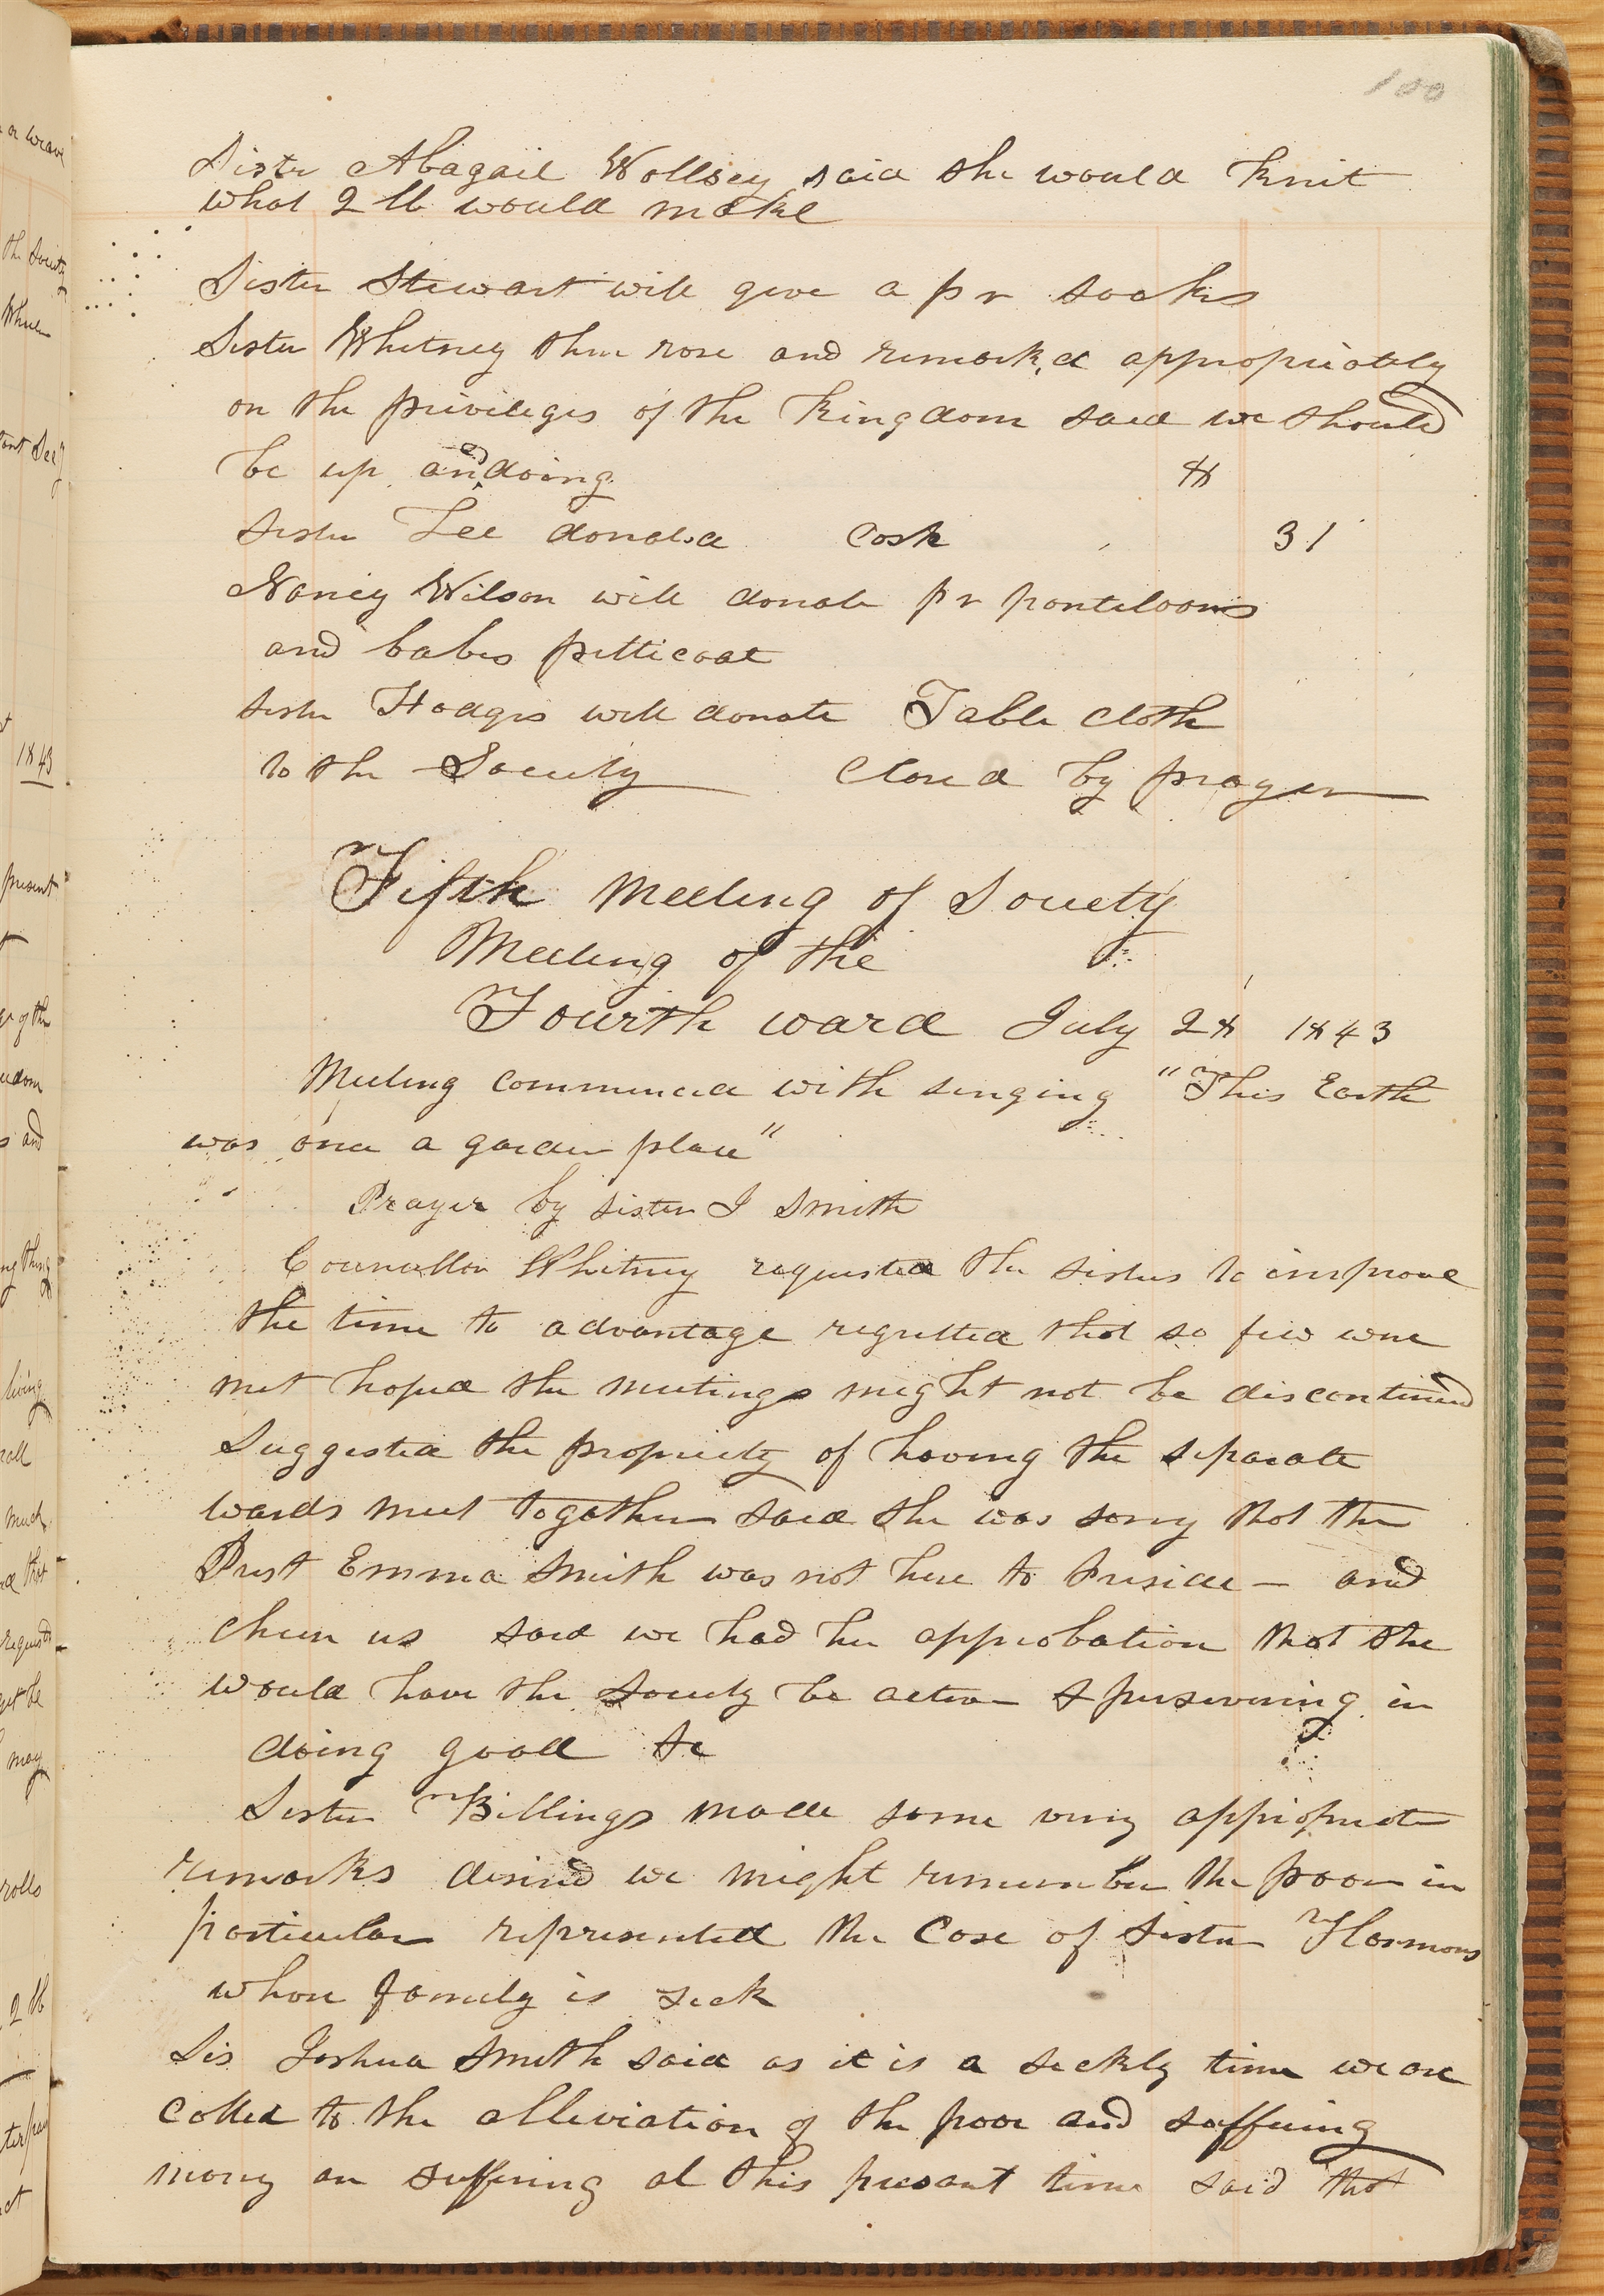 100
Sister Abagail Wollsey said she would knit
what 2 lb would make
Sister Stewart will give a pr socks
Sister Whitney then rose and remark,d appropriately
on the privileges of the Kingdom said we should
be up and doing &
sister Lee donated Cash 31
Nancy Wilson will donate pr pantiloons
and babes petticoat
sister Hodges will donate Table cloth
to the Society Closed by prayer
Fifth Meeting of Society
Meeting of the
Fourth ward July 28 1843
Meeting commenced with singing "This Earth
was once a garden place"
Prayer by sister J Smith
Councellor Whitney requested the sisters to improve
the time to advantage regretted that so few were
met hoped the meetings might not be discontinued
Suggested the propriety of having the separate
wards meet together said she was sorry that the
Prest Emma Smith was not here to Preside — and
cheer us said we had her approbation that she
would have the Society be active & perservering in
doing good &c
Sister Billings made some very appropriate
remarks desired we might remember the poor in
particular represented the case of sister Harmons
whose family is sick
Sis Joshua Smith said as it is a sickly time we are
called to the alleviation of the poor and suffering
many are suffering at this presant time said that
or weave
the Society
Wheel
1843
present
of the
and
living
much
that
requests
may
rolls
2 lb